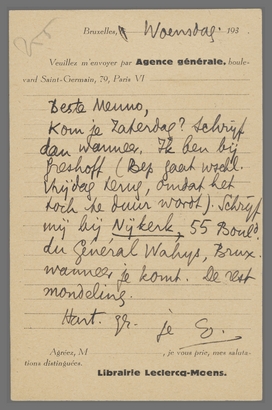 Bruxelles, Woensdag. 193
Veuillez m'envoyer par Agence générale, boule-
vard Saint-Germain, 79, Paris VI
Beste Menno,
Kom je Zaterdag? Schrijf
dan wanneer. Ik ben bij
Greshoff (Bep gaat wschl.
Vrijdag terug, omdat het
toch te duur wordt). Schrijf
mij bij Nijkerk, 55 Bould.
du Général Wahys, Brux.
wanneer je komt. De rest
mondeling.
Hart. gr. je
Agréez, M , je vous prie, mes saluta-
tions distinguées.
Librairie Leclercq-Moens.